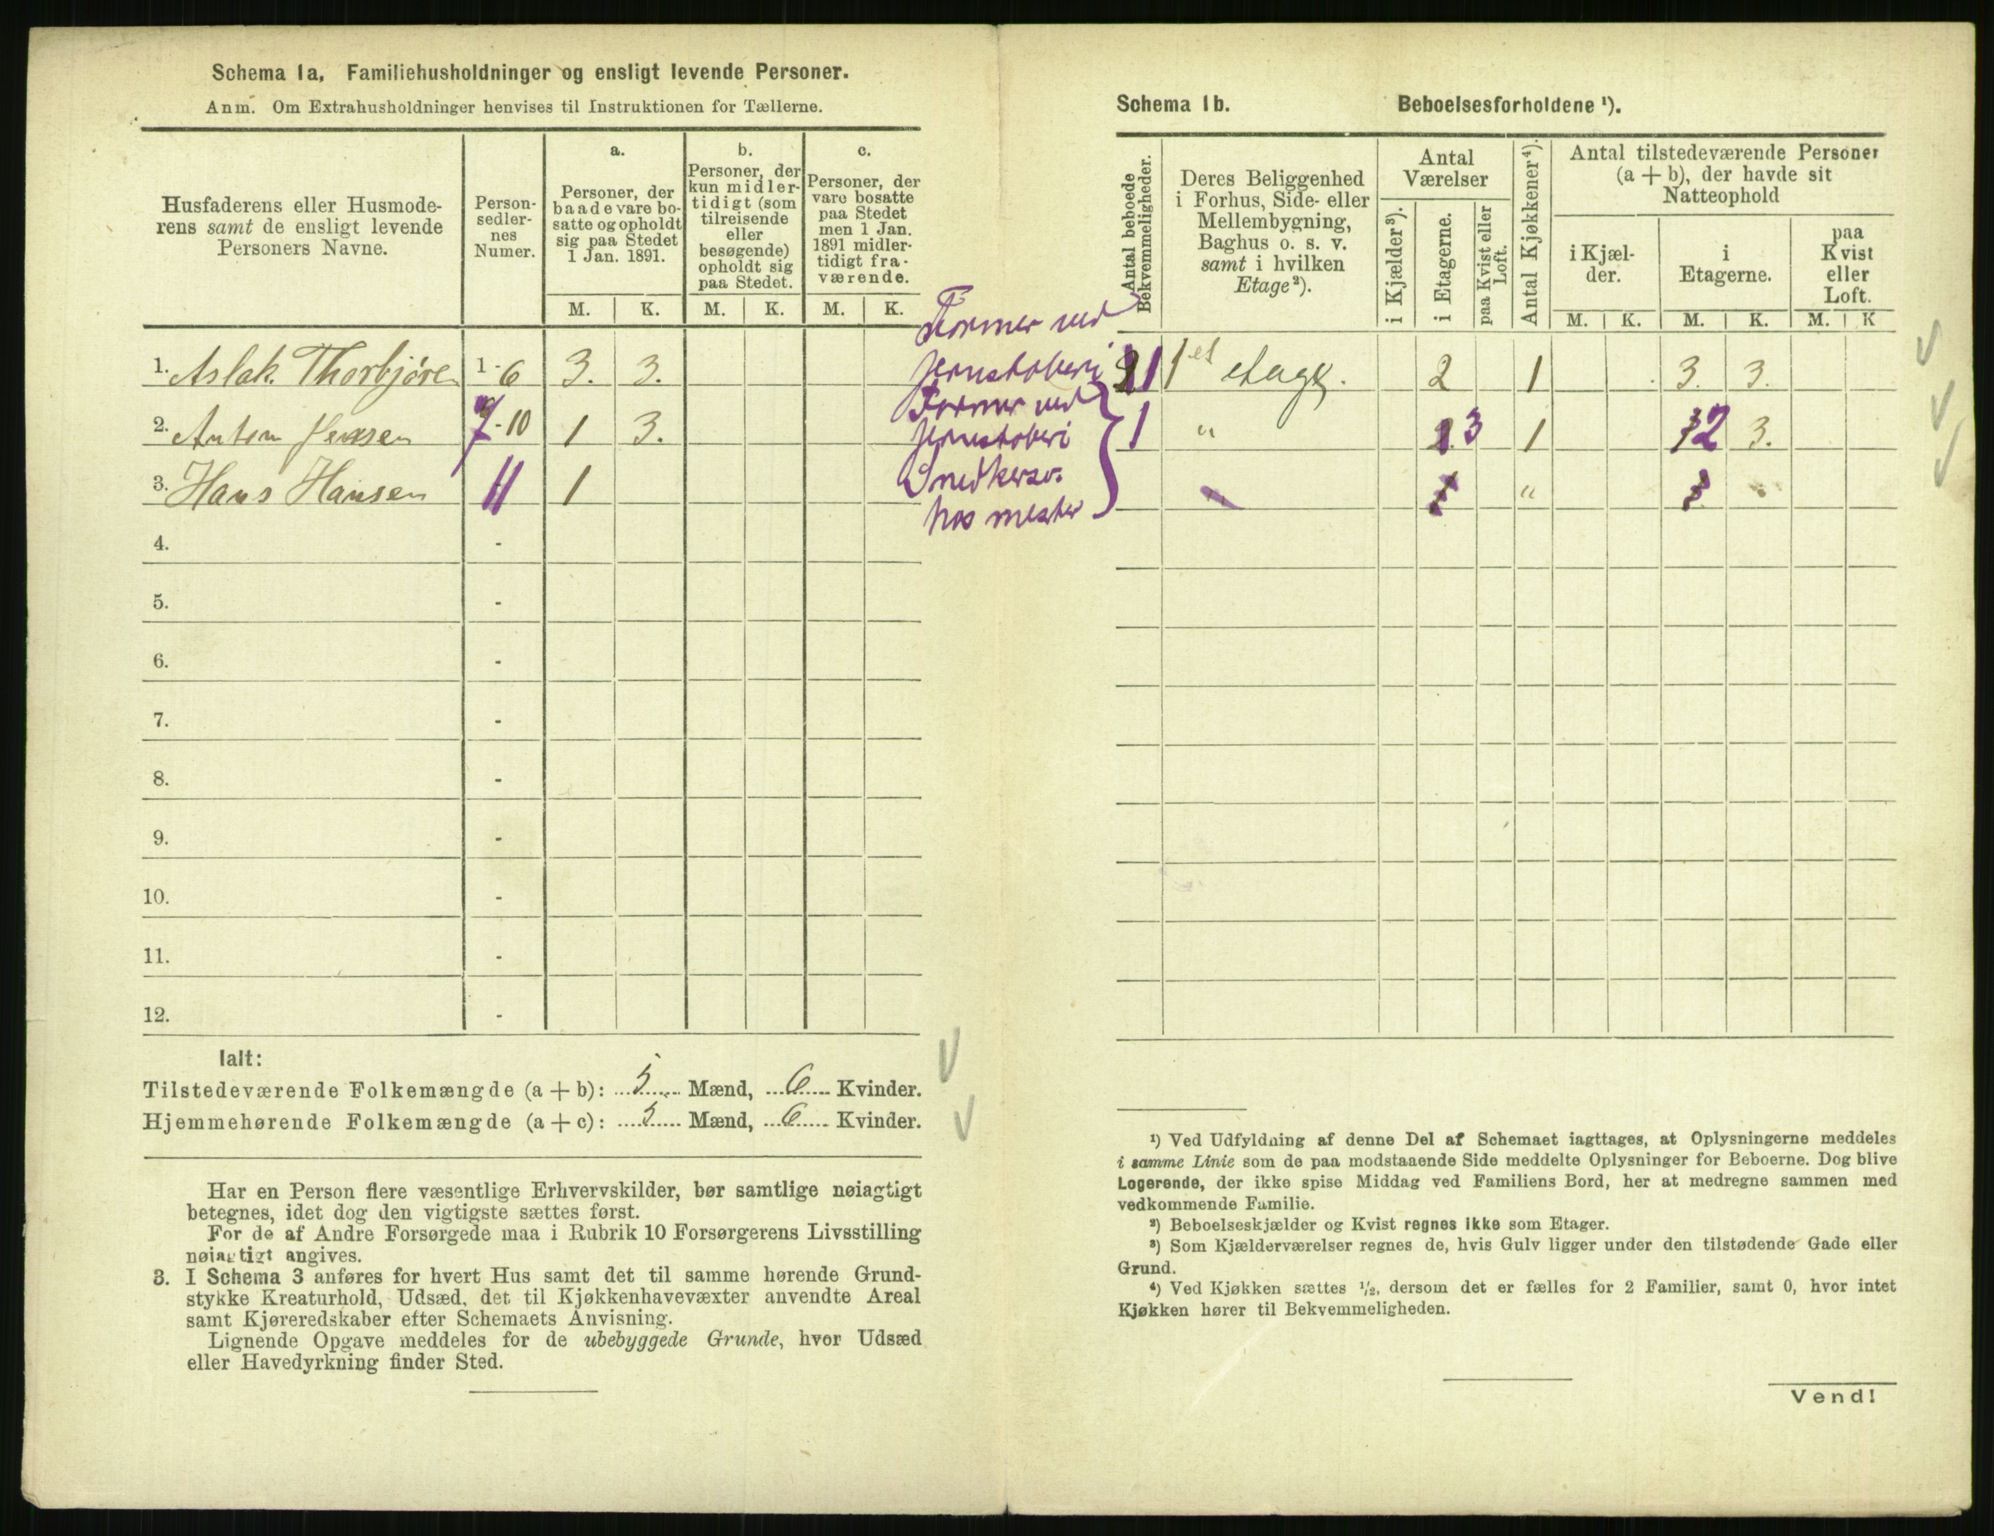 Schema 1a, Familiehusholdninger og ensligt levende Personer.
Anm. Om Extrahusholdninger henvises til Instruktionen for Tællerne.
Husfaderens eller Husmode-
rens samt de ensligt levende
Personers Navne.
Person-
sedler-
nes
Numer.
a.
Personer, der
baade vare bo-
satte og opholdt
sig paa Stedet
1 Jan. 1891.
b.
Personer, der
kun midler-
tidigt (som
tilreisende
eller
besøgende)
opholdt sig
paa Stedet.
c.
Personer, der
vare bosatte
paa Stedet
men 1 Jan.
1891 midler-
tidigt fra-
værende.
M. K. M. K. M. K.
1. Aslak Thorbjörn 1-6 3. 3.
2. Anton Jensen 7-10 1 3.
3. Hans Hansen 11 1
4. -
5. -
6. -
7. -
8. -
9. -
10. -
11. -
12. -
Ialt:
Tilstedeværende Folkemængde (a + b): 5 Mænd, 6 Kvinder.
Hjemmehørende Folkemængde (a + c): 5 Mænd, 6 Kvinder.
Har en Person flere væsentlige Erhvervskilder, bør samtlige nøiagtigt
betegnes, idet dog den vigtigste sættes først.
For de af Andre Forsørgede maa i Rubrik 10 Forsørgerens Livsstilling
nøiagtigt angives.
3. I Schema 3 anføres for hvert Hus samt det til samme hørende Grund-
stykke Kreaturhold, Udsæd, det til Kjøkkenhavevæxter anvendte Areal
samt Kjøreredskaber efter Schemaets Anvisning.
Lignende Opgave meddeles for de ubebyggede Grunde, hvor Udsæd
eller Havedyrkning finder Sted.
Former ved
jernstøberi
Former ved
jernstøberi
Snedkersv.
hos mester
Schema 1b. Beboelsesforholdene ¹).
Antal beboede
Bekvemmeligheder.
Deres Beliggenhed
i Forhus, Side- eller
Mellembygning,
Baghus o. s. v.
samt i hvilken
Etage²).
Antal
Værelser
i Kjælder³).
i Etagerne.
paa Kvist eller
Loft.
Antal Kjøkkener⁴).
Antal tilstedeværende Personer
(a + b), der havde sit
Natteophold
i Kjæl-
der.
i
Etagerne.
paa
Kvist
eller
Loft.
M. K. M. K. M. K
1 1et etage. 2 1 3. 3.
1 " 3 1 2 3.
"
¹) Ved Udfyldning af denne Del af Schemaet iagttages, at Oplysningerne meddeles
i samme Linie som de paa modstaaende Side meddelte Oplysninger for Beboerne. Dog blive
Logerende, der ikke spise Middag ved Familiens Bord, her at medregne sammen med
vedkommende Familie.
²) Beboelseskjælder og Kvist regnes ikke som Etager.
³) Som Kjælderværelser regnes de, hvis Gulv ligger under den tilstødende Gade eller
Grund.
⁴) Ved Kjøkken sættes ½, dersom det er fælles for 2 Familier, samt 0, hvor intet
Kjøkken hører til Bekvemmeligheden.
Vend!